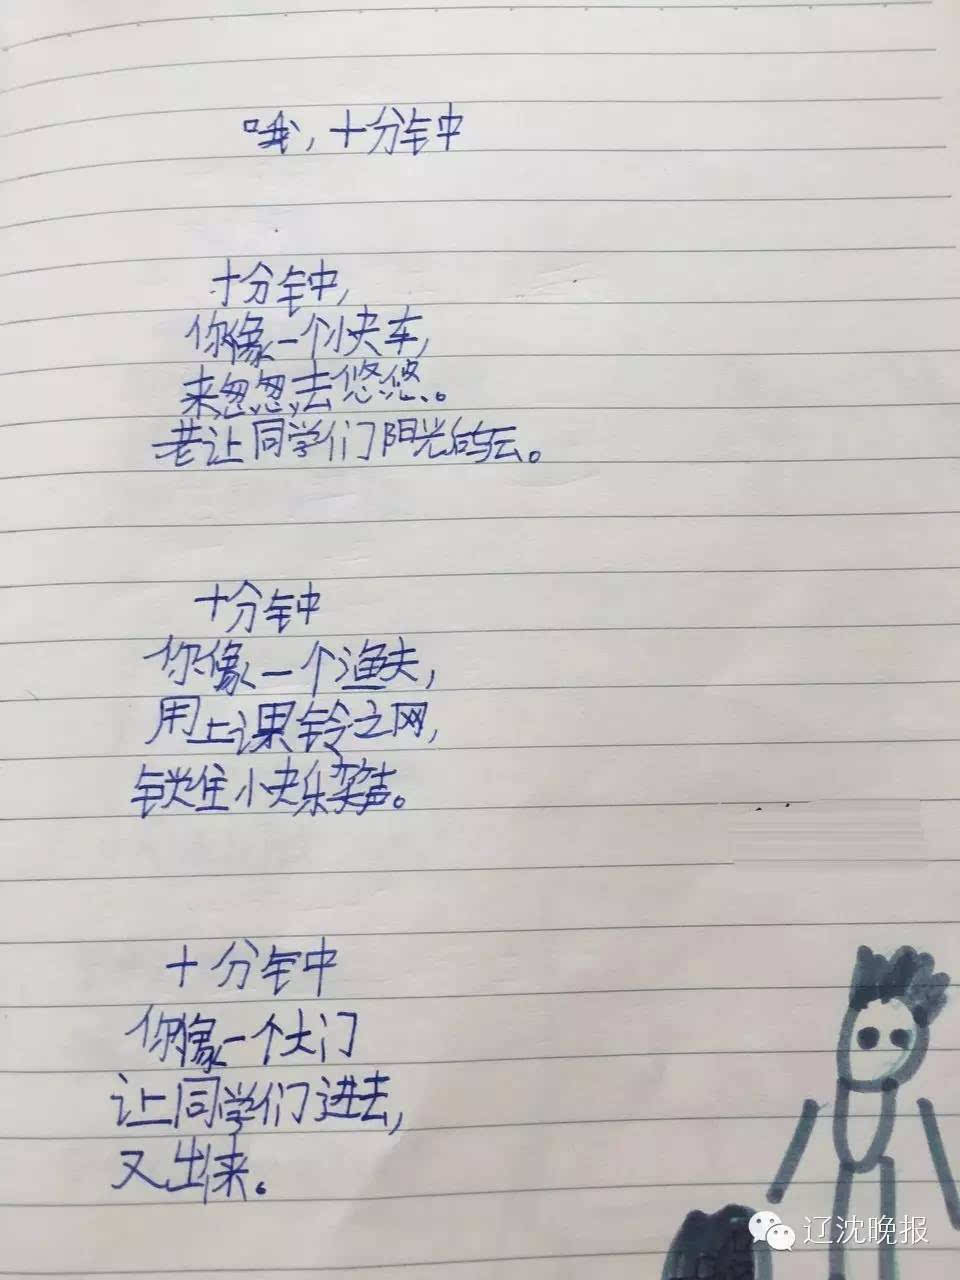 哦，十分钟
十分钟，
你像一个快车，
来忽忽，去悠悠。
老让同学们阳光云。
十分钟
你像一个渔夫，
用上课铃之网，
锁住快乐笑声。
十分钟
你像一个大门
让同学们进去，
又出来。
辽沈晚报